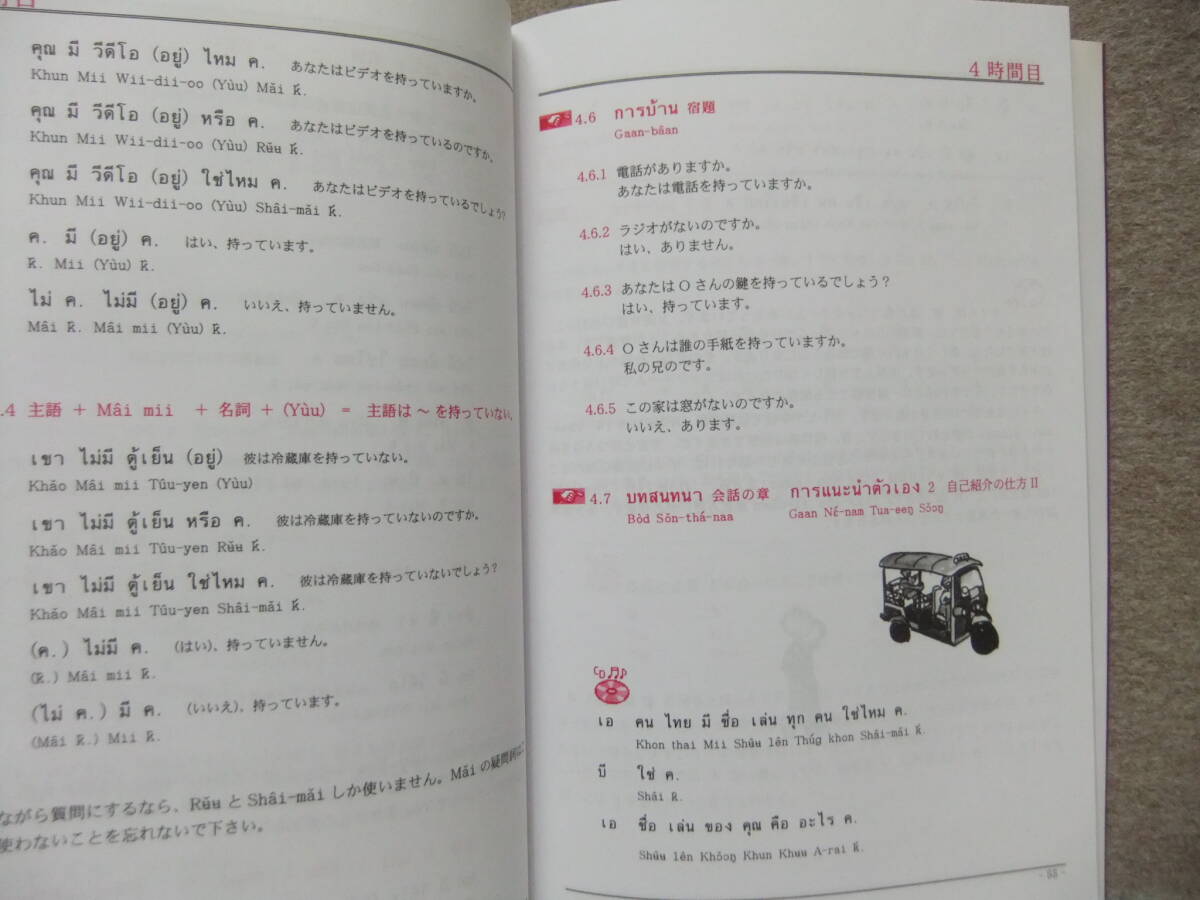 คุณ มี วีดีโอ (อยู่) ไหม ค. あなたはビデオを持っていますか。
Khun Mii Wii-dii-oo (Yùu) Mǎi K̄.
คุณ มี วีดีโอ (อยู่) หรือ ค. あなたはビデオを持っているのですか。
Khun Mii Wii-dii-oo (Yùu) Rʉ̌ʉ K̄.
คุณ มี วีดีโอ (อยู่) ใช่ไหม ค. あなたはビデオを持っているでしょう?
Khun Mii Wii-dii-oo (Yùu) Shâi-mǎi K̄.
ค. มี (อยู่) ค. はい、持っています。
K̄. Mii (Yùu) K̄.
ไม่ ค. ไม่มี (อยู่) ค. いいえ、持っていません。
Mâi K̄. Mâi mii (Yùu) K̄.
.4 主語 + Mâi mii + 名詞 + (Yùu) = 主語は ~ を持っていない。
เขา ไม่มี ตู้เย็น (อยู่) 彼は冷蔵庫を持っていない。
Khǎo Mâi mii Tûu-yen (Yùu)
เขา ไม่มี ตู้เย็น หรือ ค. 彼は冷蔵庫を持っていないのですか。
Khǎo Mâi mii Tûu-yen Rʉ̌ʉ K̄.
เขา ไม่มี ตู้เย็น ใช่ไหม ค. 彼は冷蔵庫を持っていないでしょう?
Khǎo Mâi mii Tûu-yen Shâi-mǎi K̄.
(ค.) ไม่มี ค. (はい)、持っていません。
(K̄.) Mâi mii K̄.
(ไม่ ค.) มี ค. (いいえ)、持っています。
(Mâi K̄.) Mii K̄.
ながら質問にするなら、Rʉ̌ʉ と Shâi-mǎi しか使いません。Mǎi の疑問詞は
使わないことを忘れないで下さい。
4時間目
4.6 การบ้าน 宿題
Gaan-bâan
4.6.1 電話がありますか。
あなたは電話を持っていますか。
4.6.2 ラジオがないのですか。
はい、ありません。
4.6.3 あなたは O さんの鍵を持っているでしょう?
はい、持っています。
4.6.4 O さんは誰の手紙を持っていますか。
私の兄のです。
4.6.5 この家は窓がないのですか。
いいえ、あります。
4.7 บทสนทนา 会話の章 การแนะนำตัวเอง 2 自己紹介の仕方 II
Bòd Sǒn-thá-naa Gaan Né-nam Tua-eeŋ Sǒoŋ
CD
เอ คน ไทย มี ชื่อ เล่น ทุก คน ใช่ไหม ค.
Khon thai Mii Shʉ̂ʉ lên Thúg khon Shâi-mǎi K̄.
บี ใช่ ค.
Shâi K̄.
เอ ชื่อ เล่น ของ คุณ คือ อะไร ค.
Shʉ̂ʉ lên Khǒoŋ Khun Khʉʉ A-rai K̄.